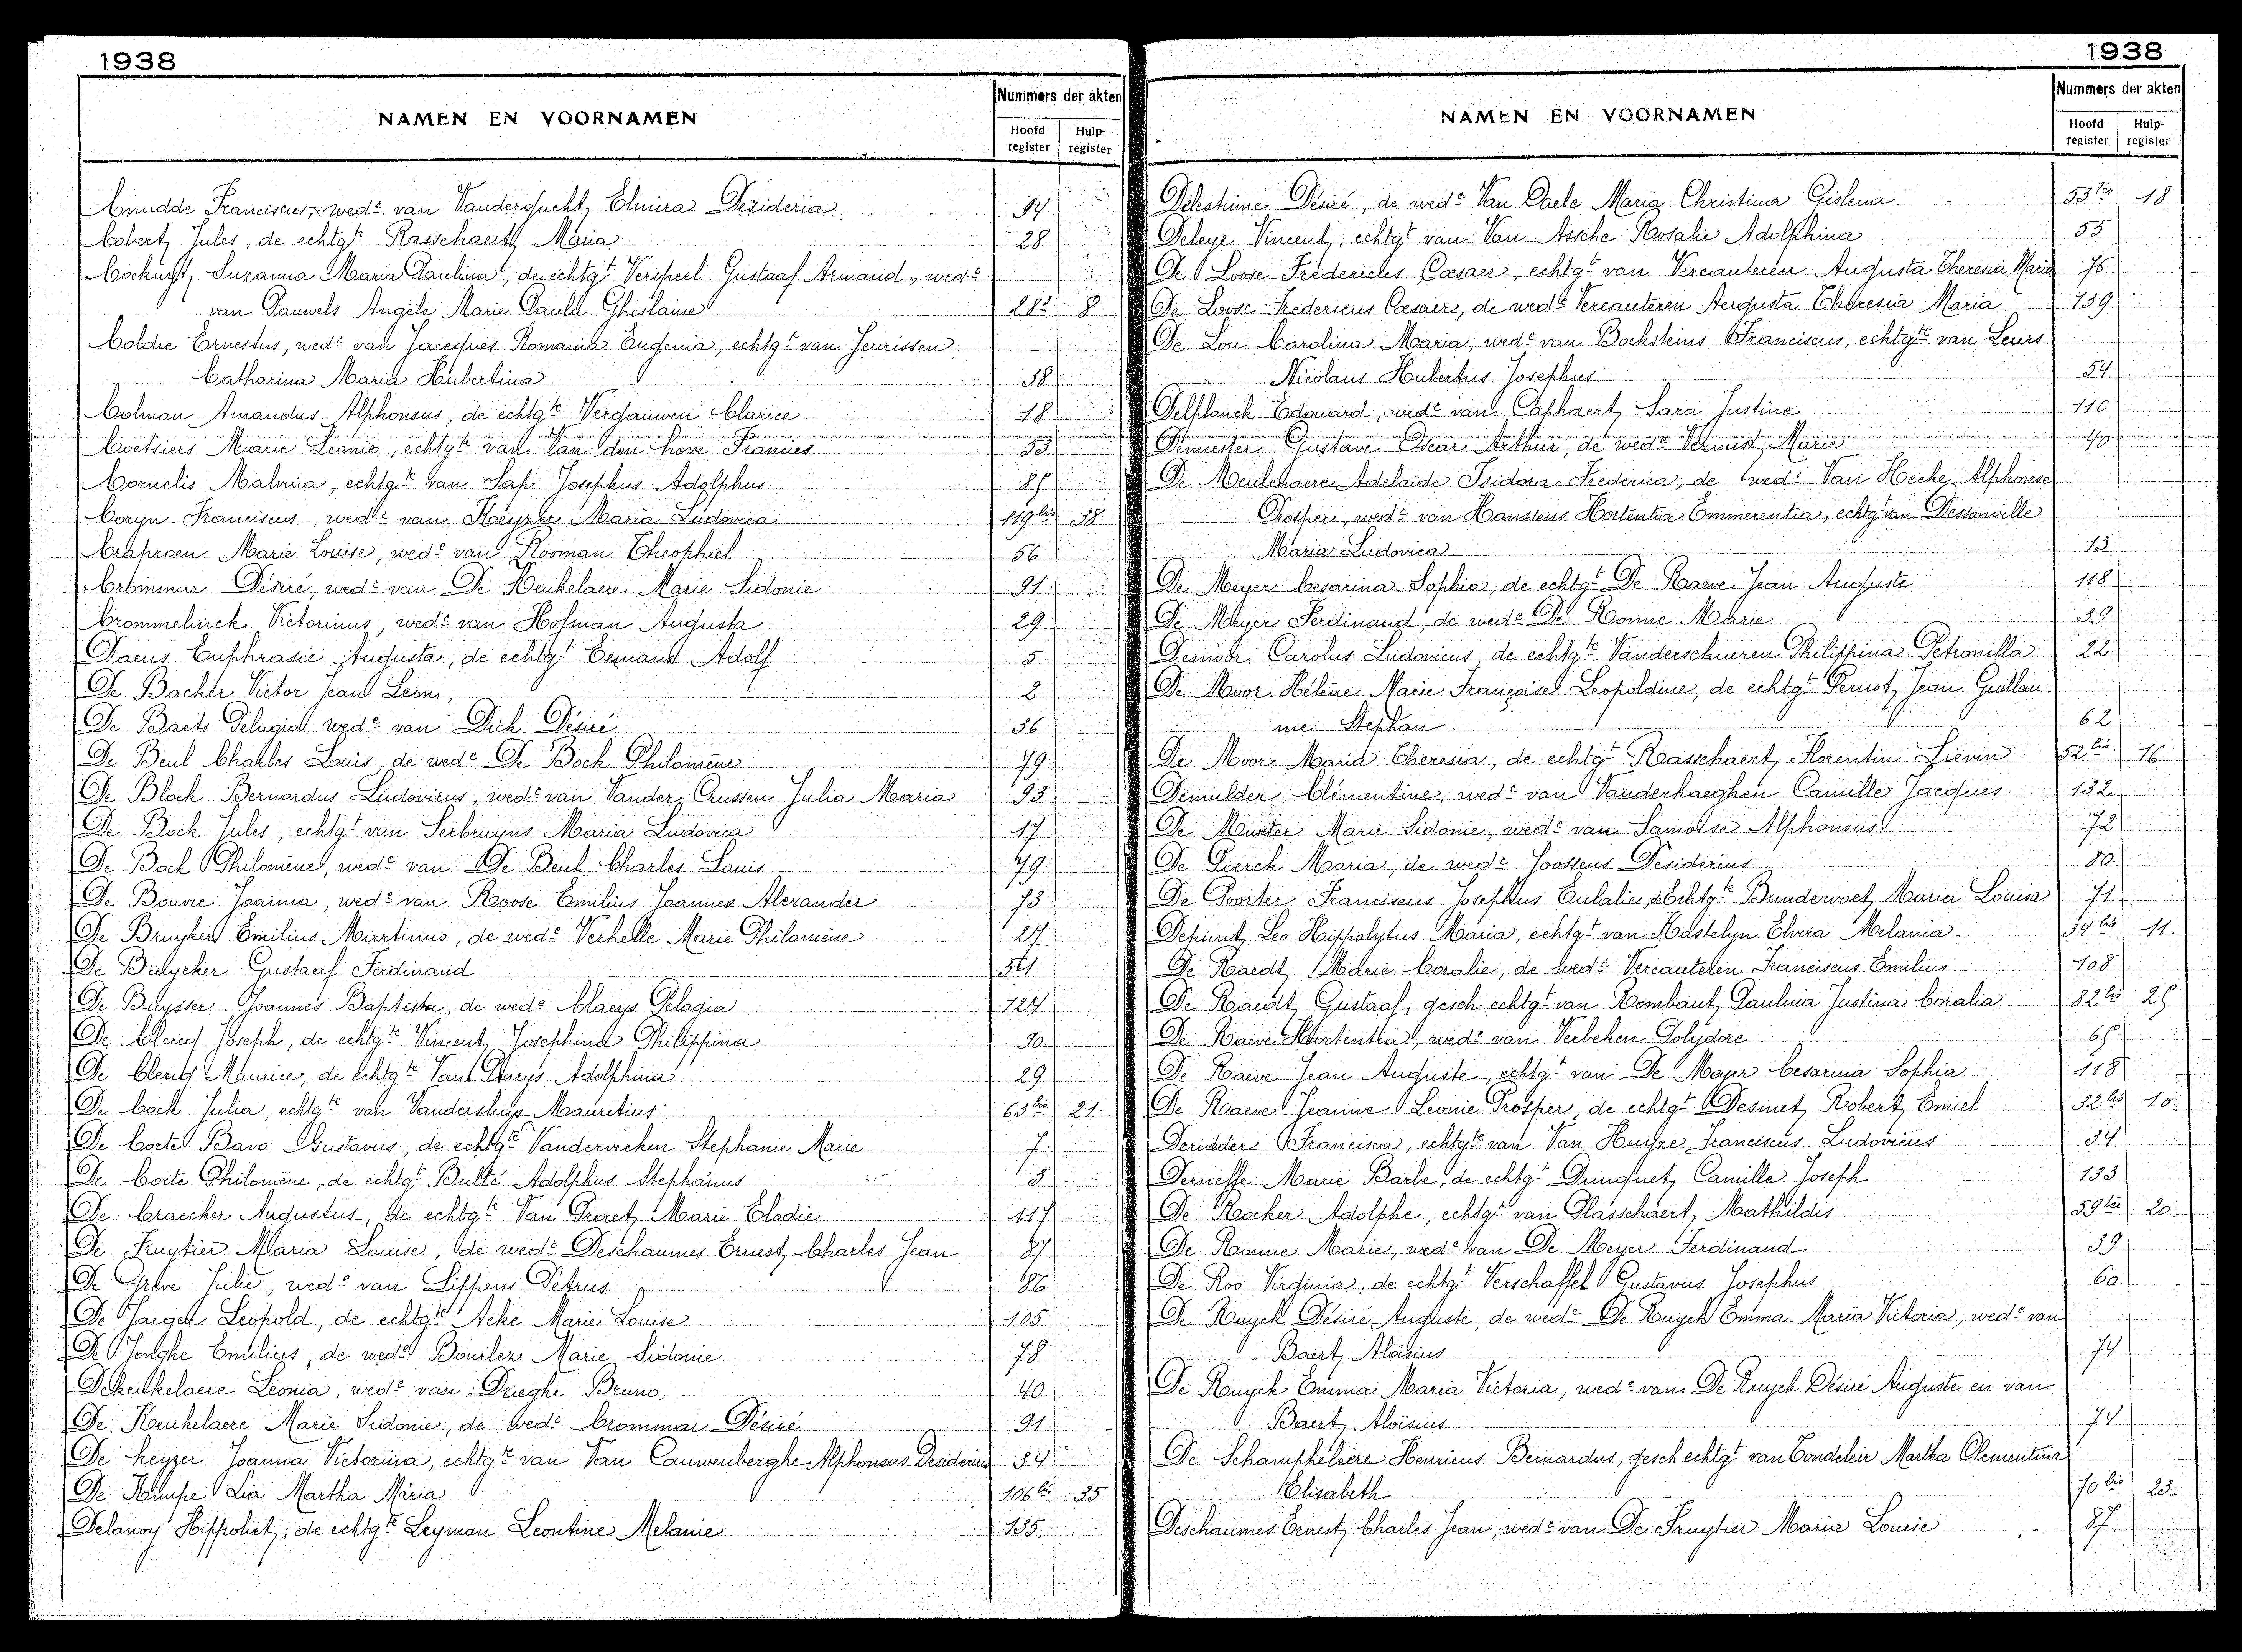 1938
NAMEN EN VOORNAMEN
Nummers der akten
Hoofd register Hulp-register
Cnudde Franciscus, wede. van Vandergucht, Elmira Desideria 94
Cobert, Jules, de echtgte Rasschaert, Maria 28
Cockuyt, Suzanna Maria Paulina, de echtgt Verspeel Gustaaf Armand, wede
van Pauwels Angèle Marie Paula Ghislaine 28 8
Coldre Ernestus, wede van Jaceques Romania Eugenia, echtgt van Jeurissen
Catharina Maria Hubertina 38
Colman Amandus Alphonsus, de echtgte Vergauwen Clarice 18
Coetsiers Marie Leonie, echtgte van Van den hove Francies 53
Cornelis Malvina, echtgte van Sap Josephus Adolphus 85
Coryn Franciscus, wede van Keyzer Maria Ludovica 119bis 38
Craproen Marie Louise, wede van Rooman Theophiel 56
Crommar Désiré, wede van De Keukelaere Marie Sidonie 91
Crommelinck Victorinus, wede van Hofman Augusta 29
Daens Euphrasie Augusta, de echtgt Eeman Adolf 5
De Backer Victor Jean Leon, 2
De Baets Pelagia wede van Dick Désiré 36
De Beul Charles Louis, de wede De Bock Philomène 79
De Block Bernardus Ludovicus, wede van Vander Crussen Julia Maria 93
De Bock Jules, echtgt van Serbruyns Maria Ludovica 17
De Bock Philomène, wede van De Beul Charles Louis 79
De Bouvre Joanna, wede van Roose Emilius Joannes Alexander 73
De Bruyker Emilius Martinus, de wede Verhelle Marie Philomène 27
De Bruycker Gustaaf Ferdinand 51
De Buysser Joannes Baptista, de wede Claeys Pelagia 124
De Clercq Joseph, de echtgte Vincent, Josephina Philippina 90
De Clercq Maurice, de echtgte Van Parys Adolphina 29
De Cock Julia, echtgte van Vandersluys Mauritius 63bis 21
De Corte Bavo Gustavus, de echtgte Vandervreken Stephanie Marie 7
De Corte Philomène, de echtgt Bulté Adolphus Stephanus 3
De Craecker Augustus, de echtgte Van Praet, Marie Elodie 117
De Fruytier Maria Louise, de wede Deschaumes Ernest, Charles Jean 87
De Grève Julie, wede van Lippens Petrus 86
De Jaeger Leopold, de echtgte Acke Marie Louise 105
De Jonghe Emilius, de wede Bourlez Marie Sidonie 78
Dekeukelaere Leonia, wede van Drieghe Bruno. 40
De Keukelaere Marie Sidonie, de wede Crommar Désiré 91
De Keyzer Joanna Victorina, echtgte van Van Cauwenberghe Alphonsus Desiderius 34
De Kimpe Lia Martha Maria 106bis 35
Delanoy Hippoliet, de echtgte Leyman Leontine Melanie 135.
1938
NAMEN EN VOORNAMEN
Nummers der akten
Hoofd register Hulp-register
Delestinne Désiré, de wede Van Daele Maria Christina Gislena 53ter 18
Deleye Vincent, echtgt van Van Assche Rosalie Adolphina 55
De Loose Fredericus Cæsaer, echtgt van Vercauteren Augusta Theresia Maria 76
De Loose Fredericus Cæsaer, de wede Vercauteren Augusta Theresia Maria 139
De Lou Carolina Maria, wede van Bocksteins Franciscus, echtgte van Leurs
Nicolaus Hubertus Josephus 54
Delplanck Edouard, wede van Caphaert, Sara Justine 116
Demeester Gustave Oscar Arthur, de wede Vervust, Marie 40
De Meulenaere Adelaide Isidora Frederica, de wede Van Hecke Alphonse
Prosper, wede van Hanssens Hortentia Emmerentia, echtg van Dessonville
Maria Ludovica 13
De Meyer Cesarina Sophia, de echtgt De Raeve Jean Auguste 118
De Meyer Ferdinand, de wede De Ronne Marie 39
Demoor Carolus Ludovicus, de echtgte Vanderschueren Philippina Petronilla 22
De Moor Hélène Marie Françoise Leopoldine, de echtgt Pernot, Jean Guillau-
me Stephan 62
De Moor Maria Theresia, de echtgt Rasschaert, Florentin Lievin 52bis 16
Demulder Clémentine, wede van Vanderhaeghen Camille Jacques 132
De Munter Marie Sidonie, wede van Samoise Alphonsus 72
De Paerck Maria, de wede Joossens Desiderius 80
De Poorter Franciscus Josephus Eulalie, de Echtgte Bundervoet, Maria Louisa 71
Depunt, Leo Hippolytus Maria, echtgt van Kastelyn Elvira Melania 34bis 11.
De Raedt, Marie Coralie, de wede Vercauteren Franciscus Emilius 108
De Raedt, Gustaaf, gesch. echtgt van Rombaut, Paulina Justina Coralia 82bis 25
De Raeve Hortentia, wede van Verbeken Polydore 65
De Raeve Jean Auguste, echtgt van De Meyer Cesarina Sophia 118
De Raeve Jeanine Leonie Prosper, de echtgt Desmet, Robert, Emiel 32bis 10
Deridder Francisca, echtgte van Van Huyze Franciscus Ludovicus 34
Dernesse Marie Barbe, de echtgt Dunquet, Camille Joseph 133
De Rocker Adolphe, echtgt van Plasschaert, Mathildis 59ter 20
De Ronne Marie, wede van De Meyer Ferdinand 39
De Roo Virginia, de echtgt Verschaffel Gustavus Josephus 60.
De Ruyck Désiré Auguste, de wede De Ruyck Emma Maria Victoria, wede van
Baert, Aloïsius 74
De Ruyck Emma Maria Victoria, wede van De Ruyck Désiré Auguste en van
Baert, Aloïsius 74
De Schamphelaere Henricus Bernardus, gesch echtgt van Tondeleir Martha Clementina
Elisabeth 70bis 23.
Deschaumes Ernest, Charles Jean, wede van De Fruytier Maria Louise 87.